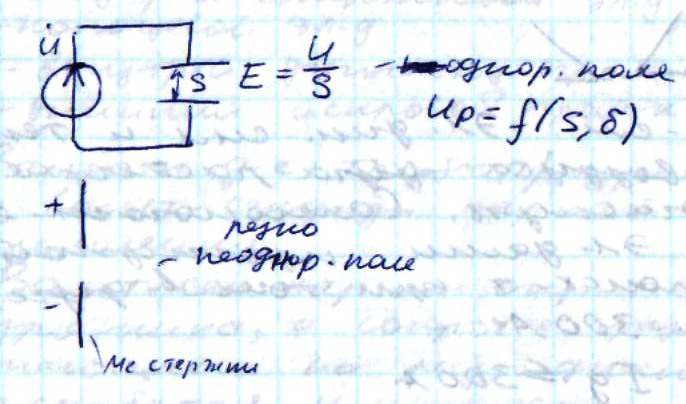 u̇ S E = U/S - однор. поле
Uр = f(S, δ)
+
резко
- неоднор. поле
-
Ме стержни